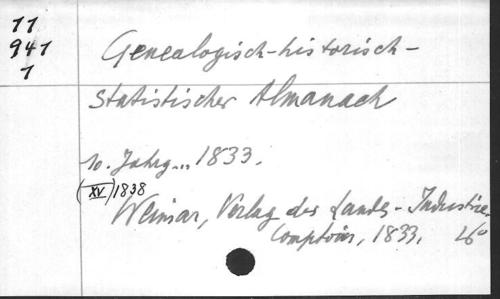 11
941
1
Genealogisch-historisch-
statistischer Almanach
10. Jahrg... 1833.
(XV) 1838
Weimar, Verlag des Landes-Industrie-
Comptoirs, 1833. 16°